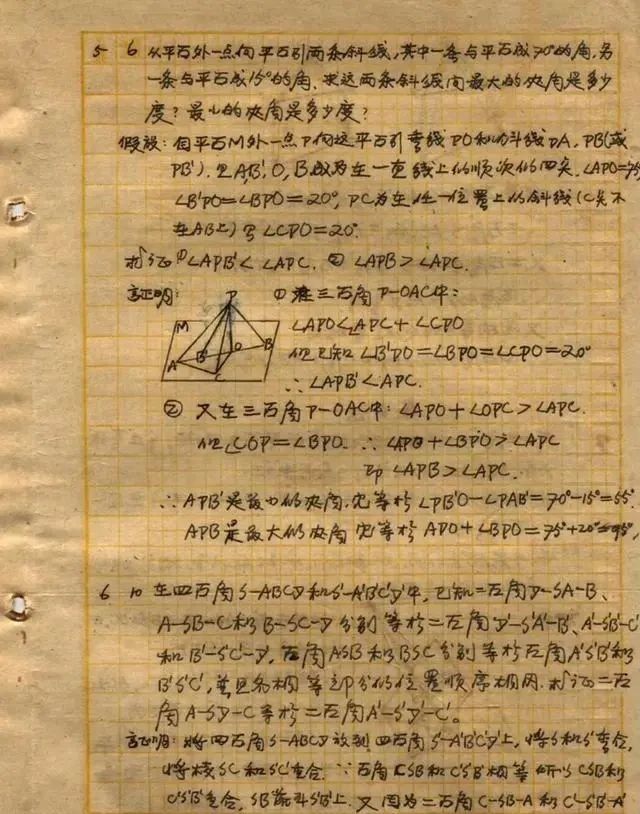 5 6 从平面外一点向平面引两条斜线,其中一条与平面成70°的角,另
一条与平面成15°的角.求这两条斜线间最大的夹角是多少
度?最小的夹角是多少度?
假设:自平面M外一点P向这平面引垂线PO和斜线PA,PB(或
PB').且A,B',O,B依次为在一直线上的顺次的四点.∠APO=75
∠B'PO=∠BPO=20°,PC为在任一位置上的斜线(C点不
在AB上)而∠CPO=20°.
求证①∠APB'<∠APC.②∠APB>∠APC.
证明: ①在三面角P-OAC中:
M P A B' O B C
∠APO<∠APC+∠CPO
但已知∠B'PO=∠BPO=∠CPO=20°
∴∠APB'<APC.
②又在三面角P-OAC中:∠APO+∠OPC>∠APC.
但∠COP=∠BPO.∴∠APO+∠BPO>∠APC
即∠APB>∠APC.
∴APB'是最小的夹角.它等于∠PB'O-∠PAB'=70°-15°=55°.
APB是最大的夹角它等于APO+∠BPO=75°+20°=95°,
6 10 在四面角S-ABCD和S'-A'B'C'D'中,已知二面角D-SA-B、
A-SB-C和B-SC-D分别等于二面角D'-S'A'-B'、A'-S'B'-C'
和B'-S'C'-D',面角ASB和BSC分别等于面角A'S'B'和
B'S'C',并且各相等部分的位置顺序相同.求证=二面
角A-SD-C等于二面角A'-S'D'-C'。
证明:将四面角S-ABCD放到四面角S'-A'B'C'D'上,将S和S'重合,
将棱SC和S'C'重合.∵面角CSB和C'S'B'相等所以CSB和
C'S'B'重合,SB落到S'B'上.又因为二面角C-SB-A和C'-S'B'-A'